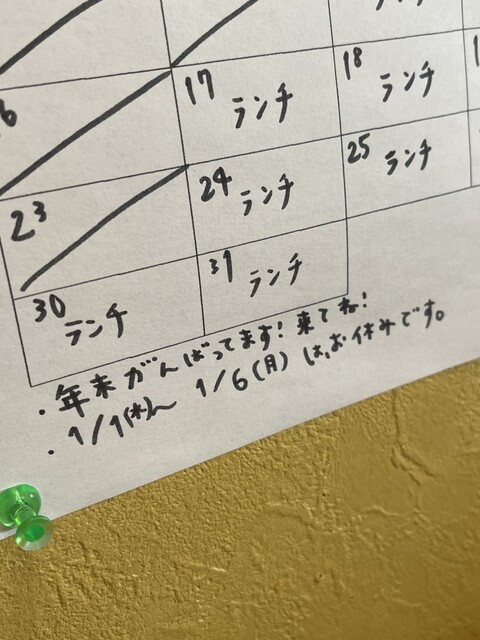 17 ランチ
18 ランチ
23
24 ランチ
25 ランチ
30 ランチ
31 ランチ
・年末がんばってます!来てね!
・1/1(水)〜 1/6(月)は、お休みです。